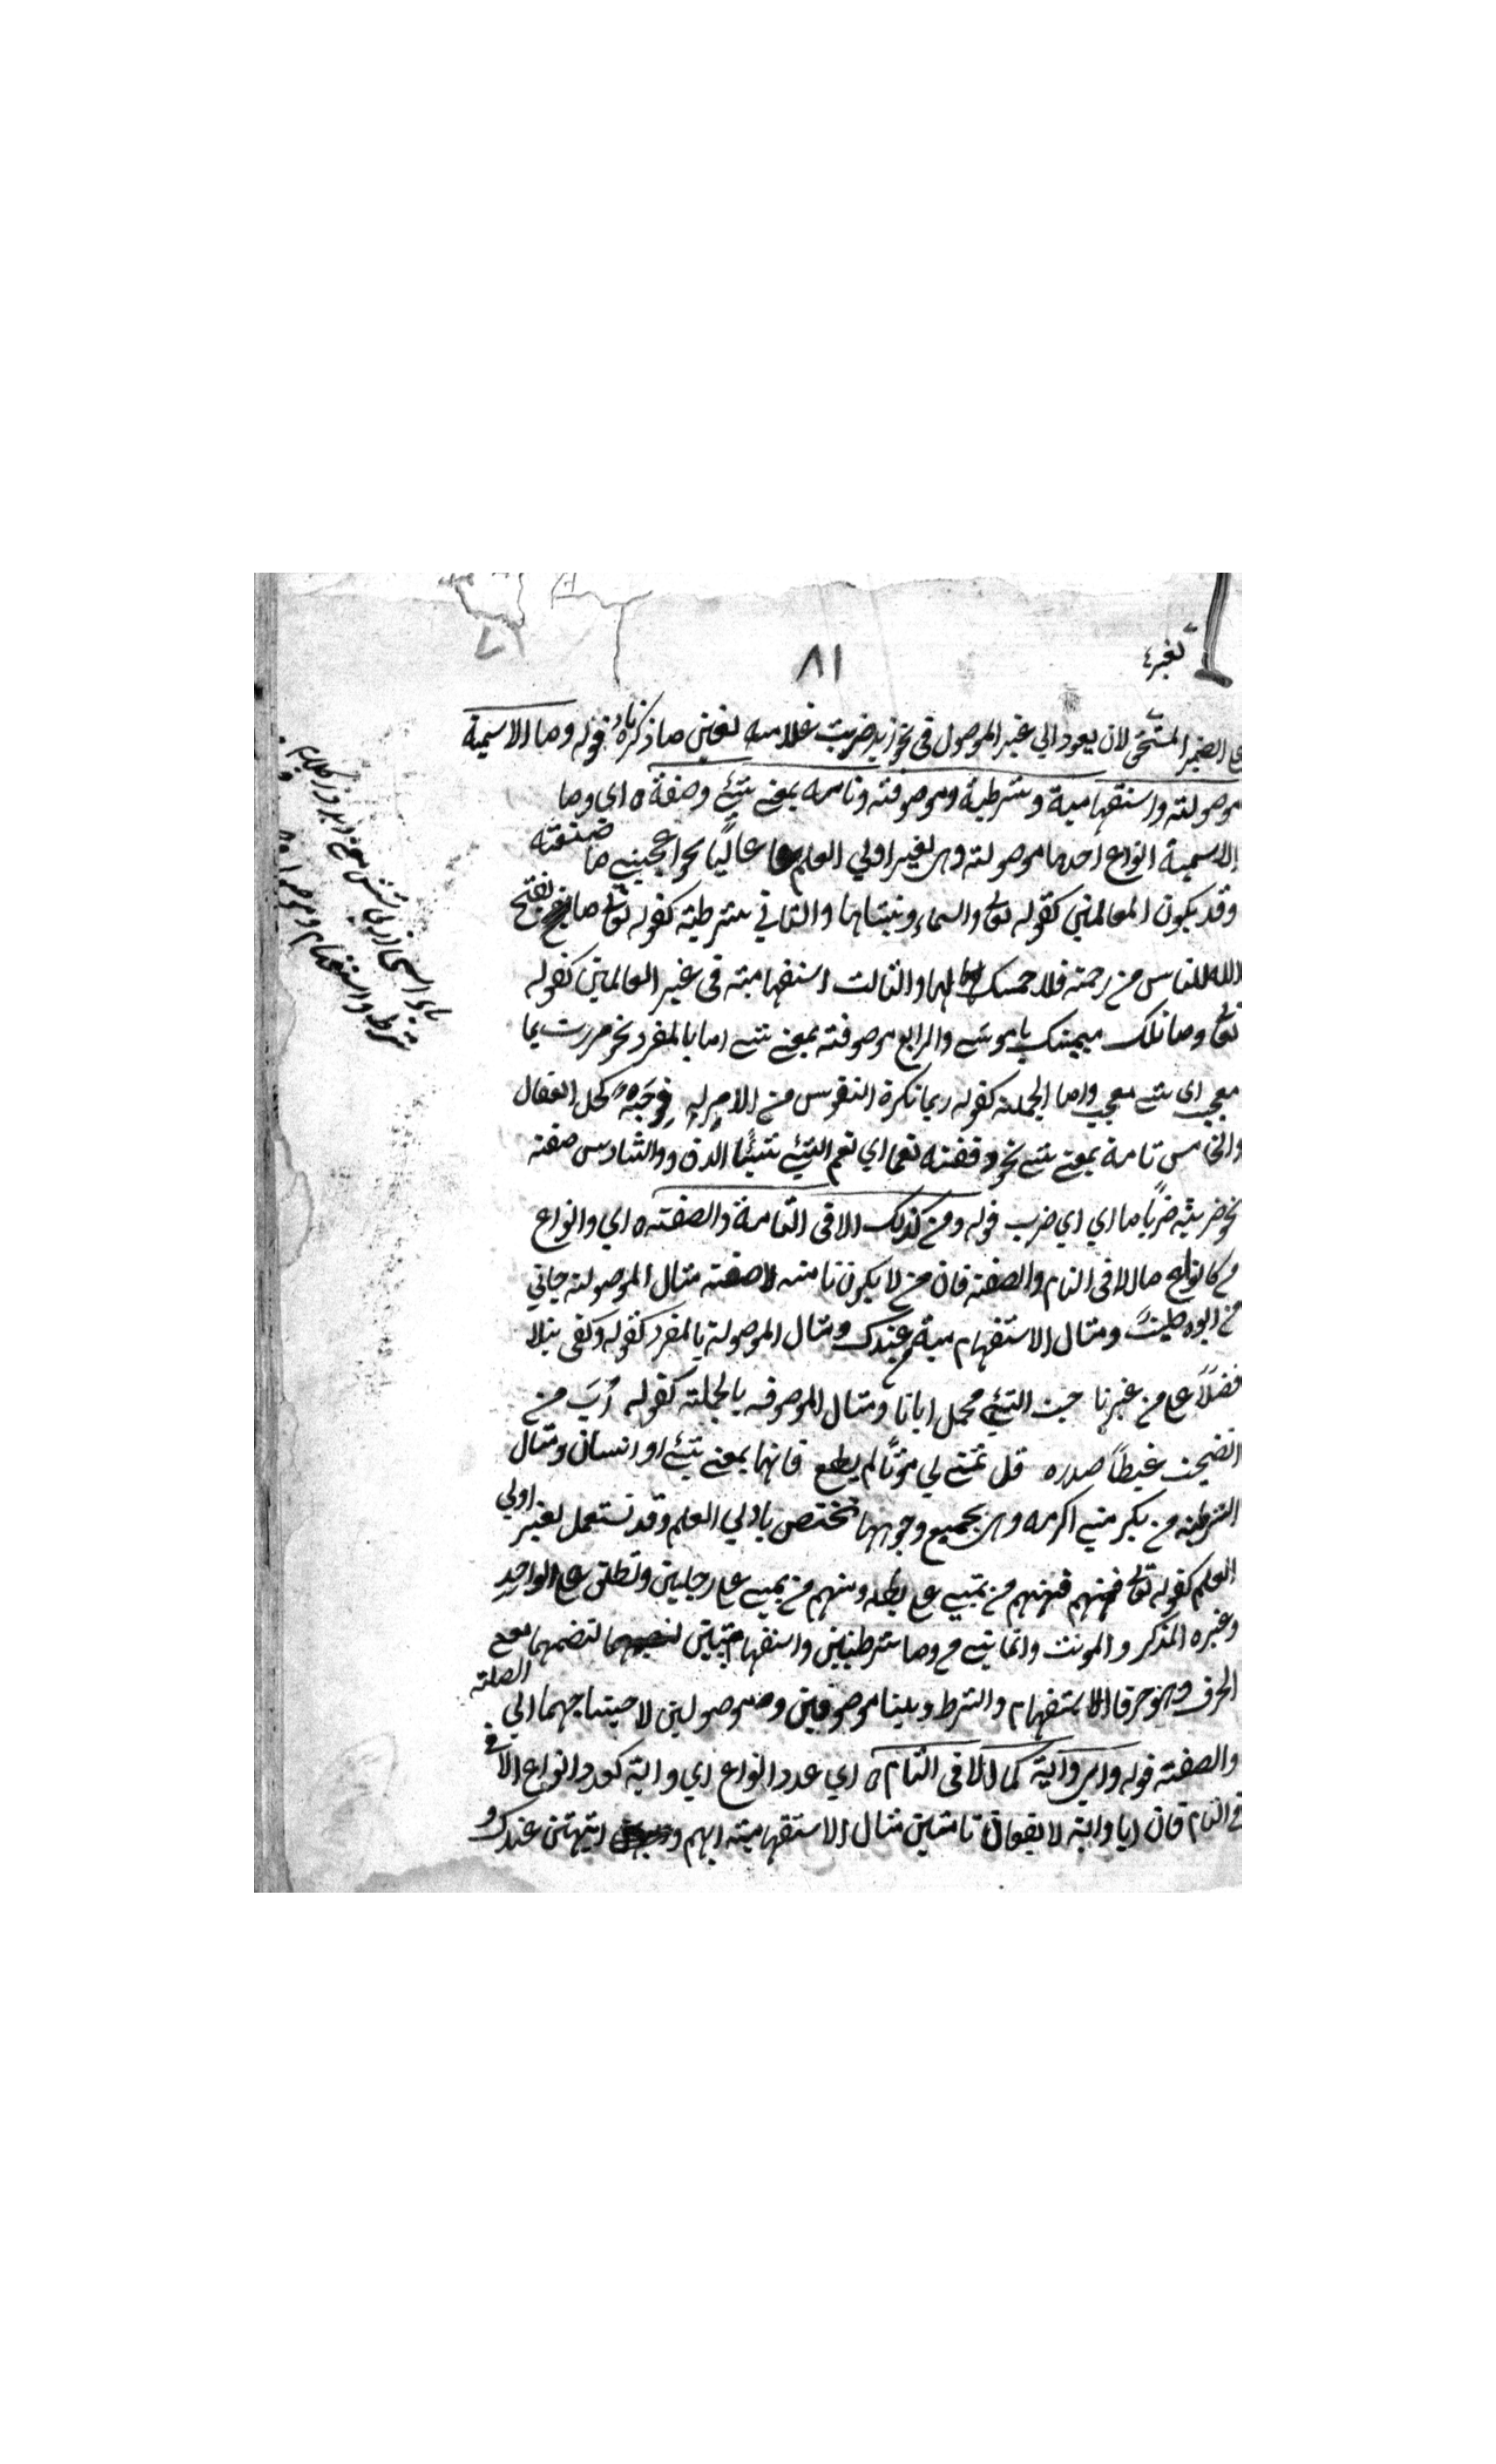 ٨١
الضمير المستحق لان يعود الي غير الموصول في نحو زيد ضربت غلامه لغيره ما ذكرناه قوله وما الاسمية
موصولة واستفهامية وشرطية وموصوفة وتامة بمعنى شئ وصفة ه اي وما
الاسمية انواع احدها موصولة وهي لغير اولي العلم غالبًا نحو اعجبني ما صنعته
وقد يكون للعالمين كقوله تعالى والسماء وبنياها والثاني شرطية كقوله تعالى ما يفتح
الله للناس من رحمة فلا ممسك لها والثالث استفهامية في غير العالمين كقوله
تعالى وما تلك بيمينك يا موسى والرابع موصوفة بمعنى شئ اما بالمفرد نحو مررت بما
معجب اي شئ معجب واما الجملة كقوله ربما تكره النفوس من الامر له فرجة كحل العقال
والخامس تامة بمعنى شئ نحو دققته نعما اي نعم الشئ شيئًا الدق والسادس صفة
نحو ضربته ضربًا ما اي اي ضرب قوله ومن كذلك الا في التامة والصفة ه اي وانواع
من كانواع ما الا في التام والصفة فان من لا يكون تامة ولا صفة مثال الموصولة جاني
من ابوه ومثال الاستفهامية من عندك ومثال الموصولة بالمفرد كقوله وكفى بنا
فضلاً على من غيرنا حب النبي محمد ايانا ومثال الموصوفة بالجملة كقوله رُبَ من
انضجت غيظاً صدره قد تمنى لي موتًا لم يطع فانها بمعنى شئ او انسان ومثال
الشرطية من يكرمني اكرمه وهي بجميع وجوهها تختص باولي العلم وقد تستعمل لغير اولي
العلم كقوله تعالى فمنهم من يمشي على بطنه ومنهم من يمشي على رجلين وتطلق على الواحد
وغيره المذكر والمونث وانما بني من وما شرطيتين واستفهاميتين لتضمهما معنى
الحرف وهو حرفا الاستفهام والشرط وبنيتا موصوفين وموصولين لاحتياجهما الى الصلة
والصفة قوله واي واية كمن الا في التام ه اي عدد انواع اي واية كعدد انواع الا في
في التام فان ايا واية لا يقعان تامتين مثال الاستفهامية ايهم و ايتهن عندك و